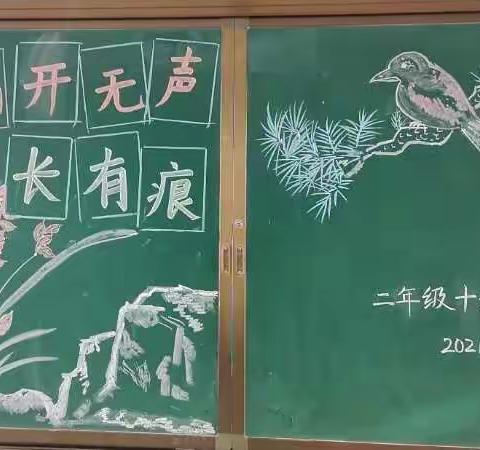 开无声
长有痕
二年级十
2021